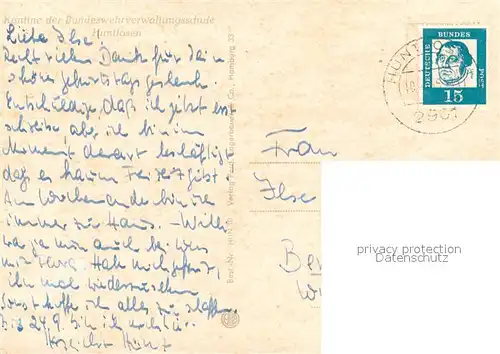 Kantine der Bundeswehrverwaltungsschule
Huntlosen
Liebe Ilse
Recht vielen Dank für dein
schönes Geburtstagsgeschenk.
Entschuldige, daß ich jetzt erst
schreibe aber ich bin im
Moment derart beschäftigt
daß es kaum Freizeit gibt.
Am Wochenende bin ich
immer zu Haus. – Willi
war ja nun auch bei uns
mit Hab mich gefreut,
ihn mal wiederzusehen
Sonst hoffe ich alles zu schaffen.
Bis 24.9. bin ich noch hier.
Herzlichst
Hamburg 33
DEUTSCHE BUNDESPOST
15
2901
Frau
Ilse
privacy protection